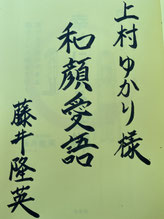 上村ゆかり様
和顔愛語
藤井隆英